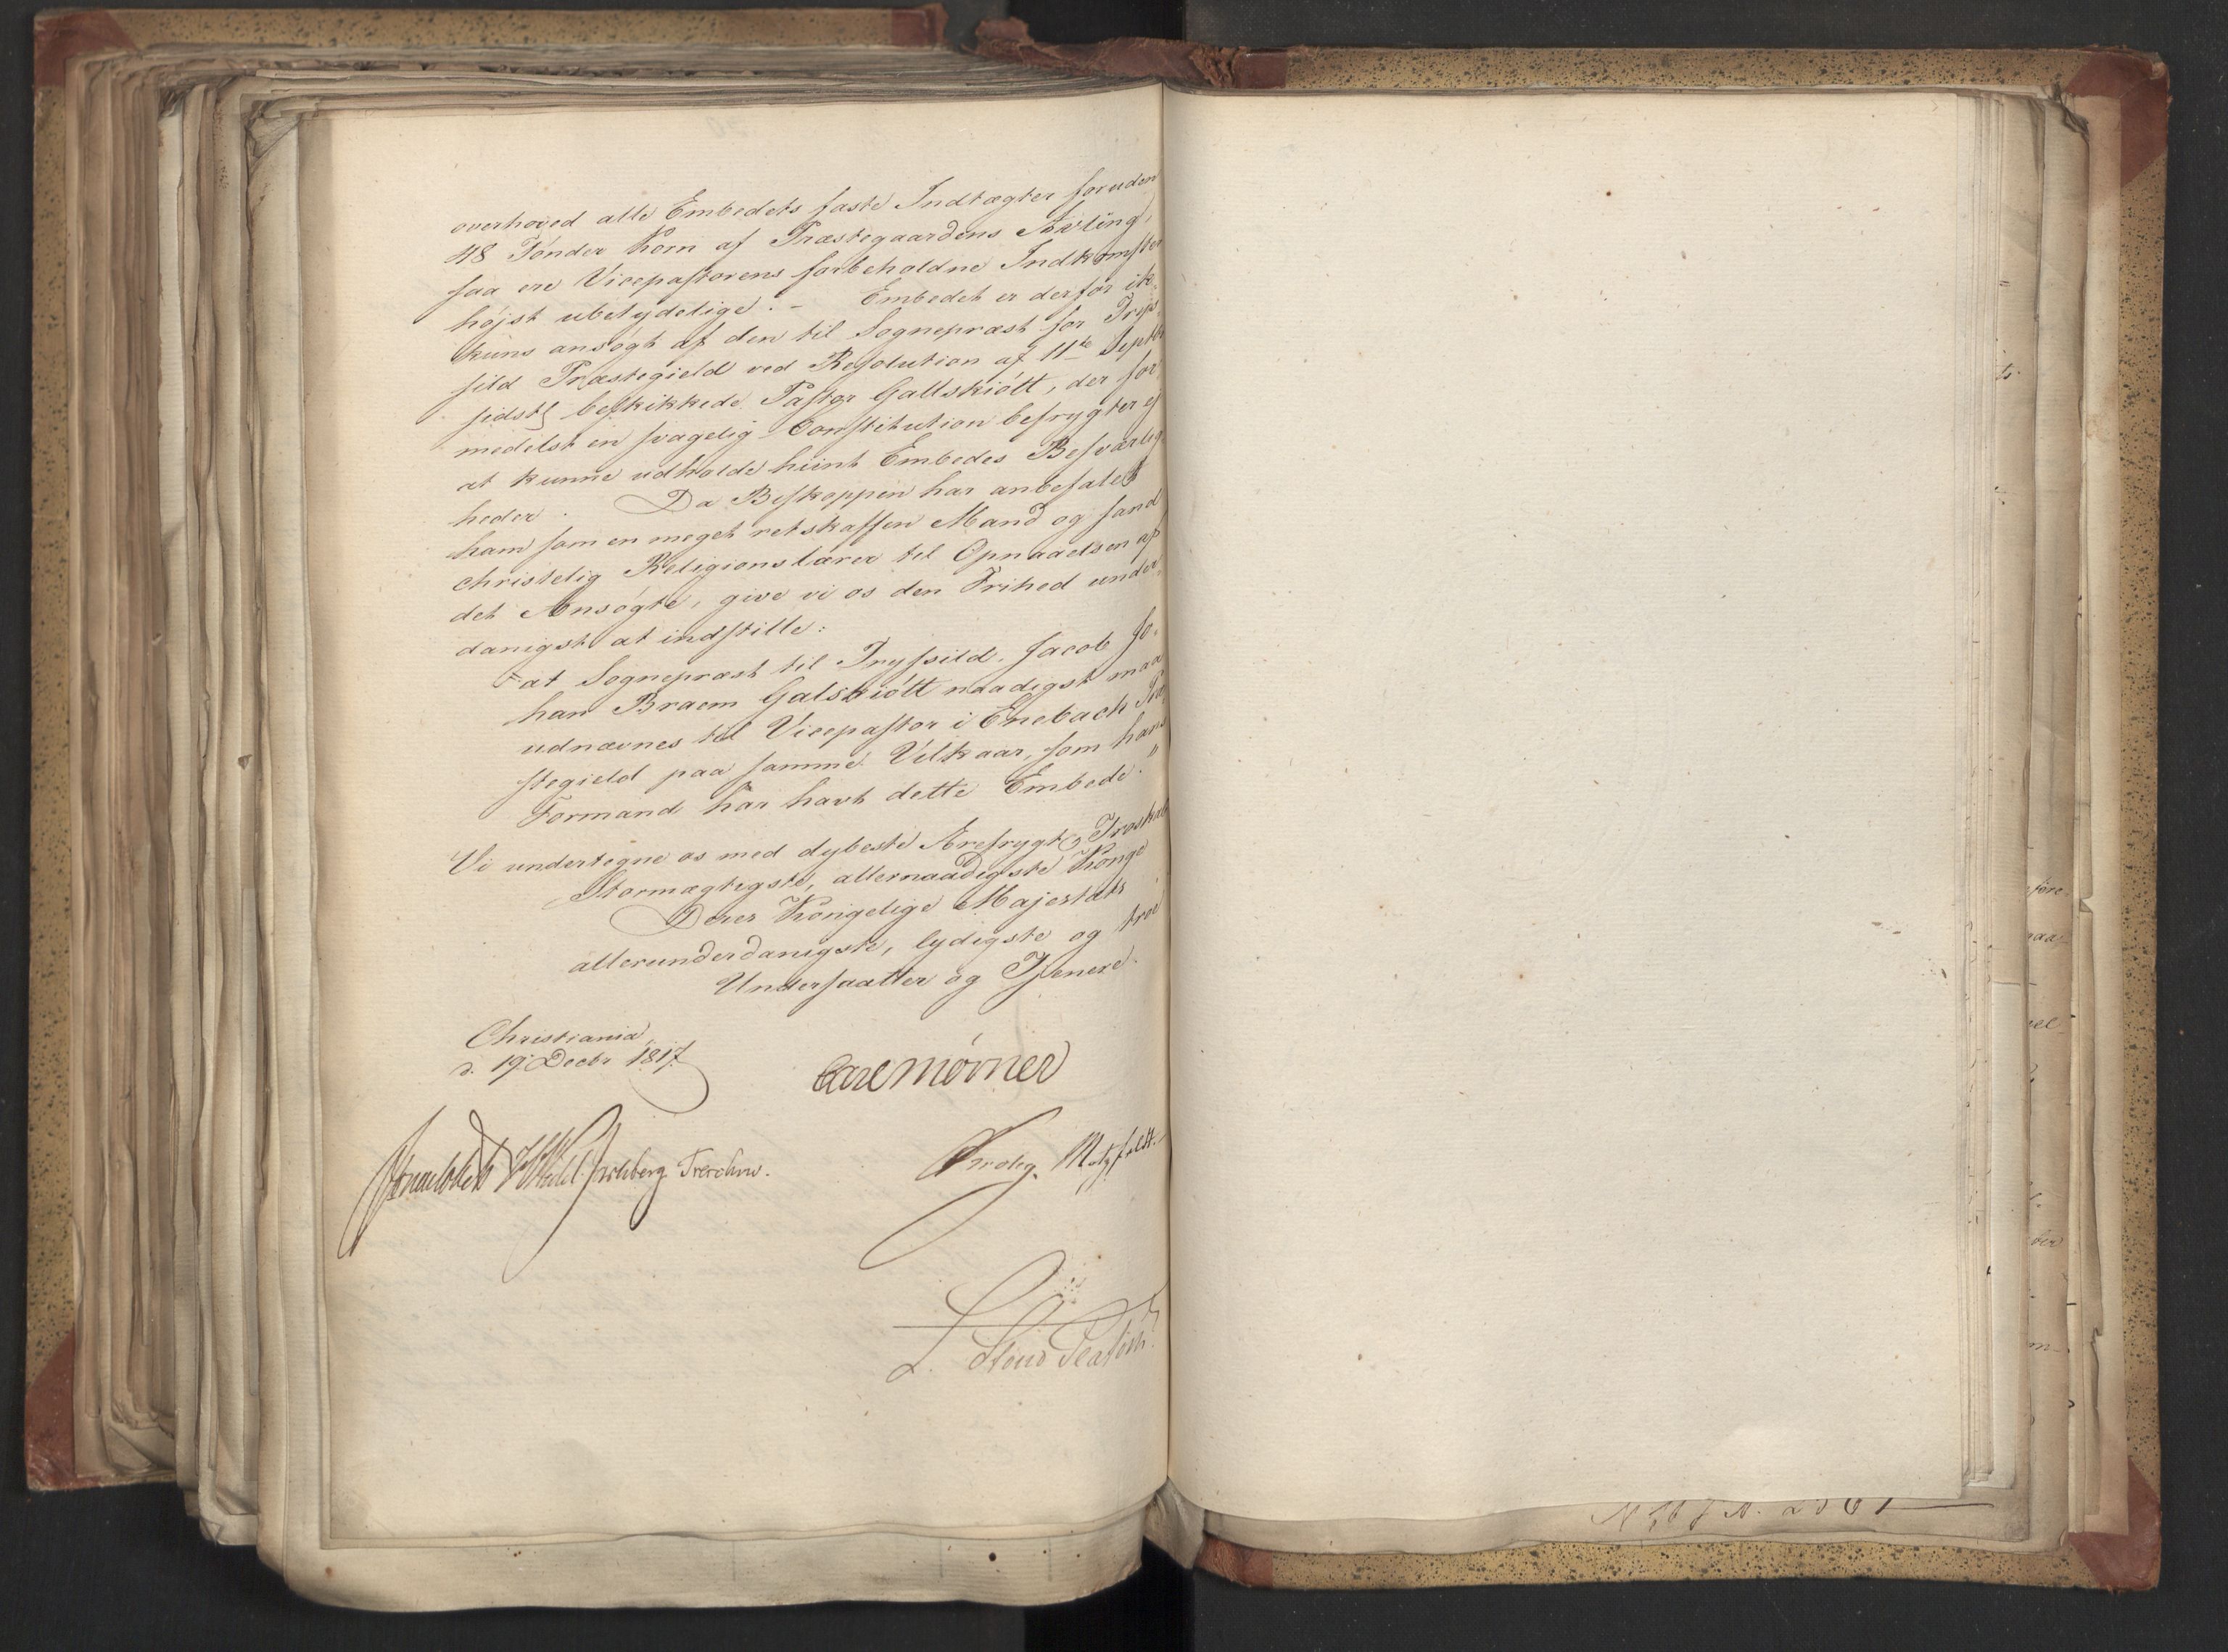 overhoved alle Embedets faste Indtægter foruden
48 Tønder Korn af Præstegaardens Avling,
saa ere Vicepastorens forbeholdne Indkomster
højst ubetydelige. - Embedet er derfor ik-
kuns ansøgt af den til Sognepræst for Trys-
sild Præstegield ved Resolution af 11te Septbr
sidstl beskikkede Pastor Gallskiøtt, der for-
medelst en svagelig Constitution befrygter ej
at kunne udholde hiint Embedes Besværlig-
heder. Da Biskoppen har anbefalet
ham som en meget retskaffen Mand og sand
christelig Religionslærer til Opnaaelsen af
det Ansøgte, give vi os den Frihed under-
danigst at indstille:
"at Sognepræst til Trysild, Jacob Jo-
han Braem Galskiøtt naadigst maa
udnævnes til Vicepastor i Enebach Præ-
stegield paa samme Vilkaar, som hans
Formand har havt dette Embede."
Vi undertegne os med dybeste Ærefrygt og Troskab
Stormægtigste, allernaadigste Konge
Deres Kongelige Majestæts
allerunderdanigste, lydigste og troe
Undersaatter og Tjenere.
Christiania
d. 19 Decbr 1817.
Carl Mörner
Sommerhielm Wedel Jarlsberg Treschow.
Krohg. Motzfeldt.
L. Stoud Platou